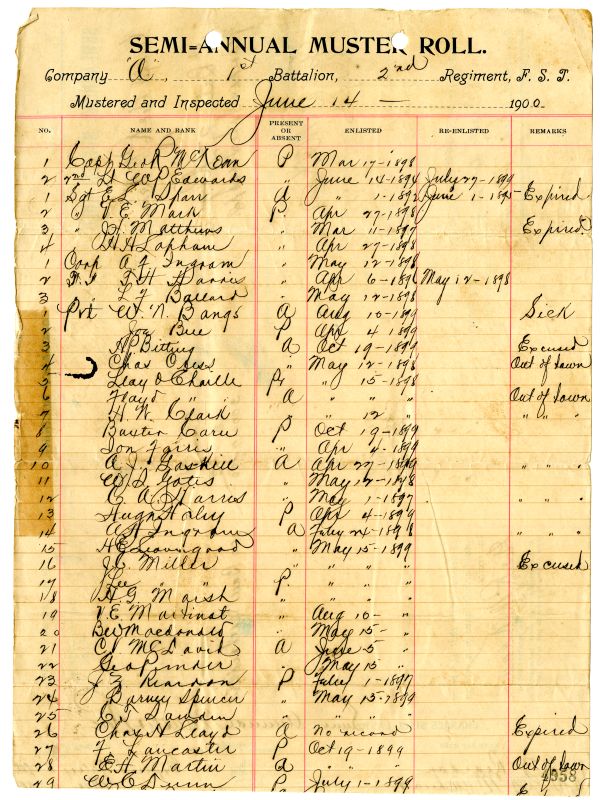 SEMI-ANNUAL MUSTER ROLL.
Company "A", 1st Battalion, 2nd Regiment, F. S. T.
Mustered and Inspected June 14 — 1900.
NO. NAME AND RANK PRESENT OR ABSENT ENLISTED RE-ENLISTED REMARKS
1 Capt Geo R McKean P Mar 17-1898
2 2nd Lt W P Edwards " June 14-1894 July 27-1899
1 Sgt E. L. Sharr a " 1-1892 June 1-1895 Expired
2 " V. E. Mark P Apr 27-1898
3 " J. Matthews " Mar 11-1897 Expired
4 " H Lapham " Apr 27-1898
1 Corp A. J. Ingram " May 12-1898
2 " F H Harris " Apr 6-1896 May 12-1898
3 " L J Ballard " May 12-1898
1 Pvt W. N. Bangs A Aug 10-1899 Sick
2 Joy Bie P Apr 4 1899
3 H P Bitting A Oct 19-1899 Excused
4 Chas " May 12-1898 Out of town
5 Leay P " 15-1898
6 Floyd " " A " " " Out of town
7 H. W. Clark " " 12 " " " "
8 Baxter Carn P Oct 19-1899
9 Don Farris " Apr 4-1899
10 A. J. Gaskell A Apr 27-1899 " " "
11 W. I. Gates " May 12-1898
12 C. A. Harris " May 1-1897 " " "
13 Hugh Haley P Apr 4-1899
14 A Ingram A Feby 24-1898 " " "
15 H C Livingood " May 15-1899
16 J. C. Miller " " " " Excused
17 Lee " P " " "
18 H. G. Marsh " " " "
19 V. E. Martinat " Aug 10- "
20 Ben Macdonald " May 15- "
21 C McDavid A June 5- "
22 Geo Pinder " May 15 "
23 J. Z. Reardon P Feby 1-1897
24 J Darney Spencer " May 15-1899
25 E. " " "
26 Chas H Lloyd A no record Expired
27 F. Lancaster P Oct 19-1899
28 E. H Martin A " " " Out of town
29 W. E. Dunn P July 1-1899
4958